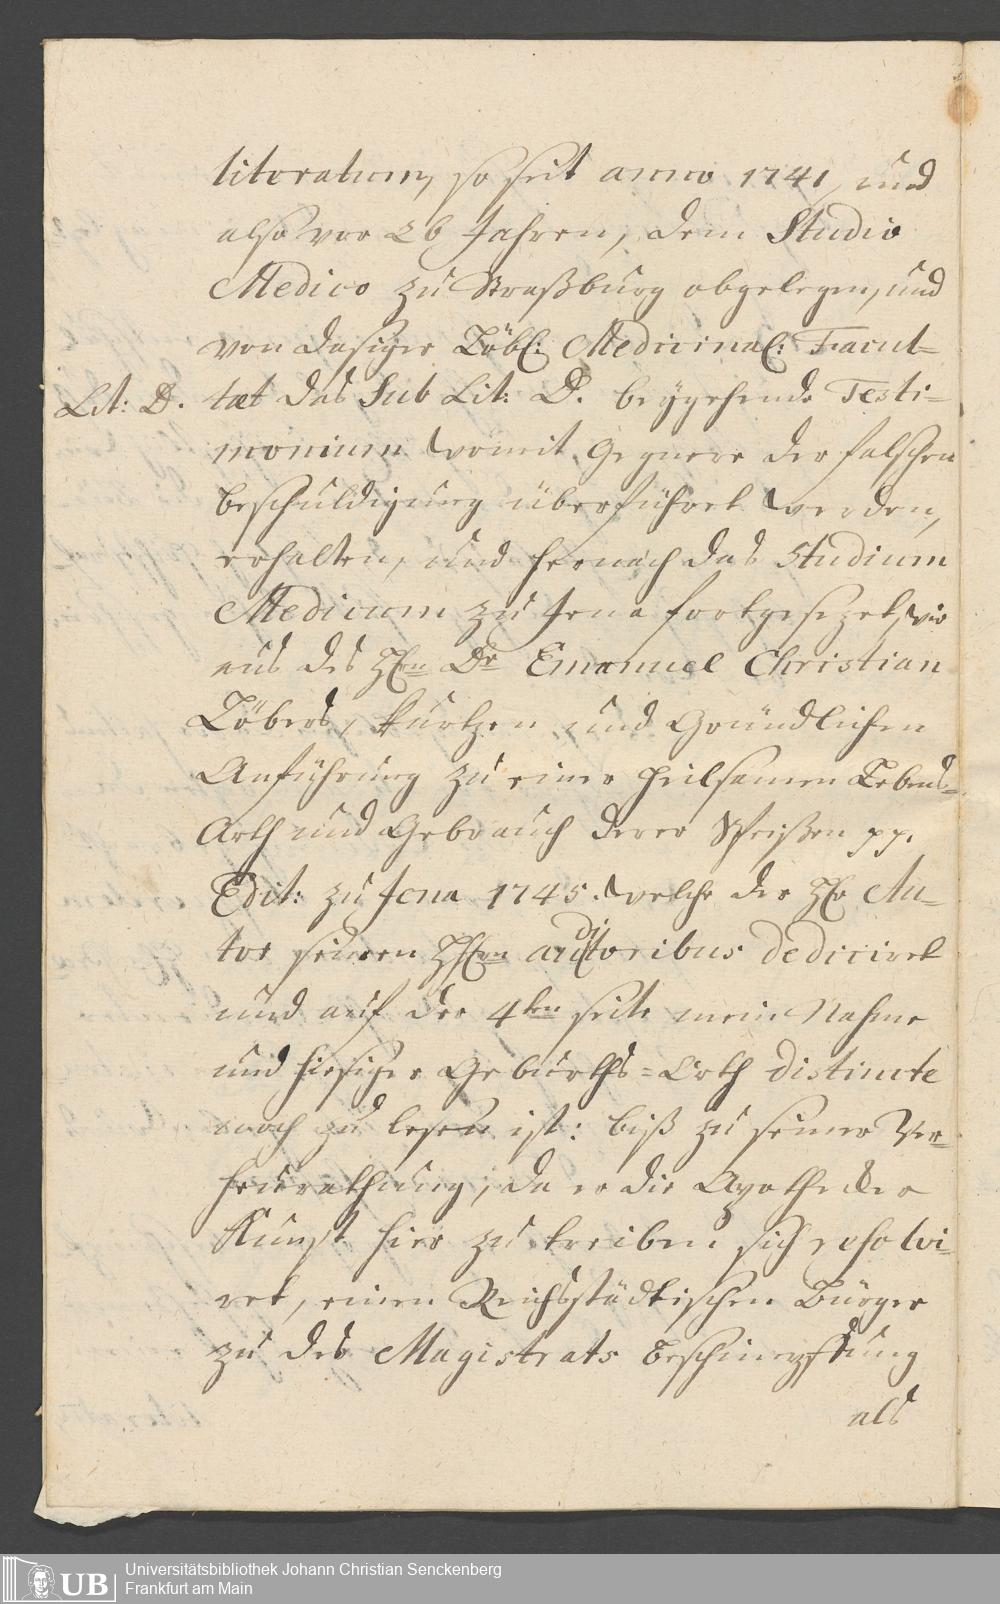 literatum, so seit anno 1741, und
also vor 26 Jahren, dem Studio
Medico zu Straßburg obgelegen, und
von dasiger Löbl: Medicinal: Facul-
Lit: D. tæt das Sub Lit: D. beygehende Testi-
monium womit Gegnere der falschen
beschuldigung überführet werden,
erhalten, und hernach das Studium
Medicum zu Jena fortgesezet, wie
aus des Hrn Dr Emanuel Christian
Löbers, kurtzen und Gründlichen
Anführung zu einer heilsamen Lebens-
Arth und Gebrauch derer Speißen pp.
Edit: zu Jena 1745. welche der Hr Au-
tor seinen HHrn auditoribus dediciret
und auf der 4ten seite mein Nahme
und hiesiger Geburths-Orth distincte
noch zu lesen ist: biß zu seiner Ver-
heurathung, da er die Apothecker
Kunst hier zu treiben sich resolvi-
ret, einen Reichsstädtischen Bürger
zu des Magistrats Beschimpffung
als
UB
Universitätsbibliothek Johann Christian Senckenberg
Frankfurt am Main